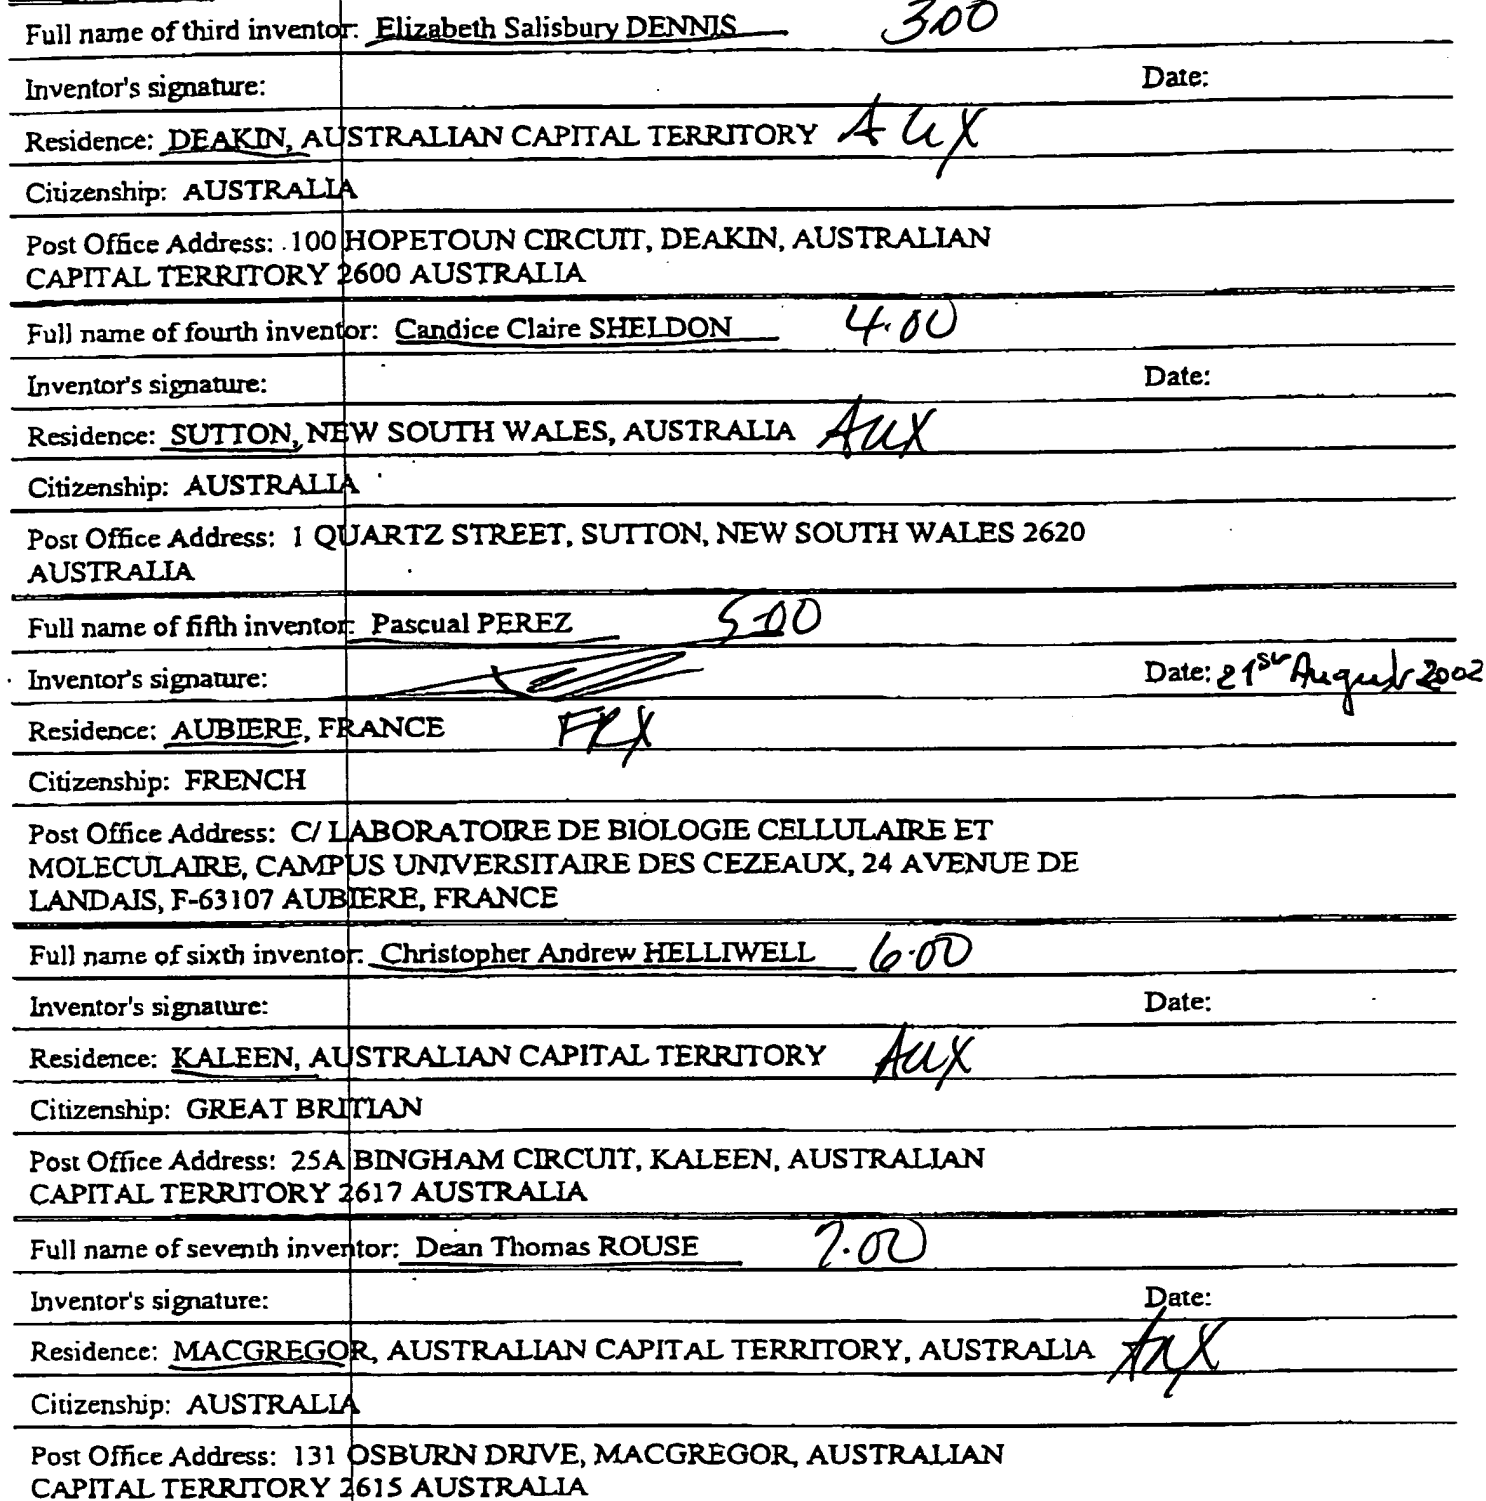 Full name of third inventor: Elizabeth Salisbury DENNIS 300
Inventor's signature: Date:
Residence: DEAKIN, AUSTRALIAN CAPITAL TERRITORY AUX
Citizenship: AUSTRALIA
Post Office Address: 100 HOPETOUN CIRCUIT, DEAKIN, AUSTRALIAN
CAPITAL TERRITORY 2600 AUSTRALIA
Full name of fourth inventor: Candice Claire SHELDON 4.00
Inventor's signature: Date:
Residence: SUTTON, NEW SOUTH WALES, AUSTRALIA AUX
Citizenship: AUSTRALIA
Post Office Address: 1 QUARTZ STREET, SUTTON, NEW SOUTH WALES 2620
AUSTRALIA
Full name of fifth inventor: Pascual PEREZ 5.00
Inventor's signature: Date: 21st August 2002
Residence: AUBIERE, FRANCE FRX
Citizenship: FRENCH
Post Office Address: C/ LABORATOIRE DE BIOLOGIE CELLULAIRE ET
MOLECULAIRE, CAMPUS UNIVERSITAIRE DES CEZEAUX, 24 AVENUE DE
LANDAIS, F-63107 AUBIERE, FRANCE
Full name of sixth inventor: Christopher Andrew HELLIWELL 6.00
Inventor's signature: Date:
Residence: KALEEN, AUSTRALIAN CAPITAL TERRITORY AUX
Citizenship: GREAT BRITIAN
Post Office Address: 25A BINGHAM CIRCUIT, KALEEN, AUSTRALIAN
CAPITAL TERRITORY 2617 AUSTRALIA
Full name of seventh inventor: Dean Thomas ROUSE 7.00
Inventor's signature: Date:
Residence: MACGREGOR, AUSTRALIAN CAPITAL TERRITORY, AUSTRALIA AUX
Citizenship: AUSTRALIA
Post Office Address: 131 OSBURN DRIVE, MACGREGOR, AUSTRALIAN
CAPITAL TERRITORY 2615 AUSTRALIA